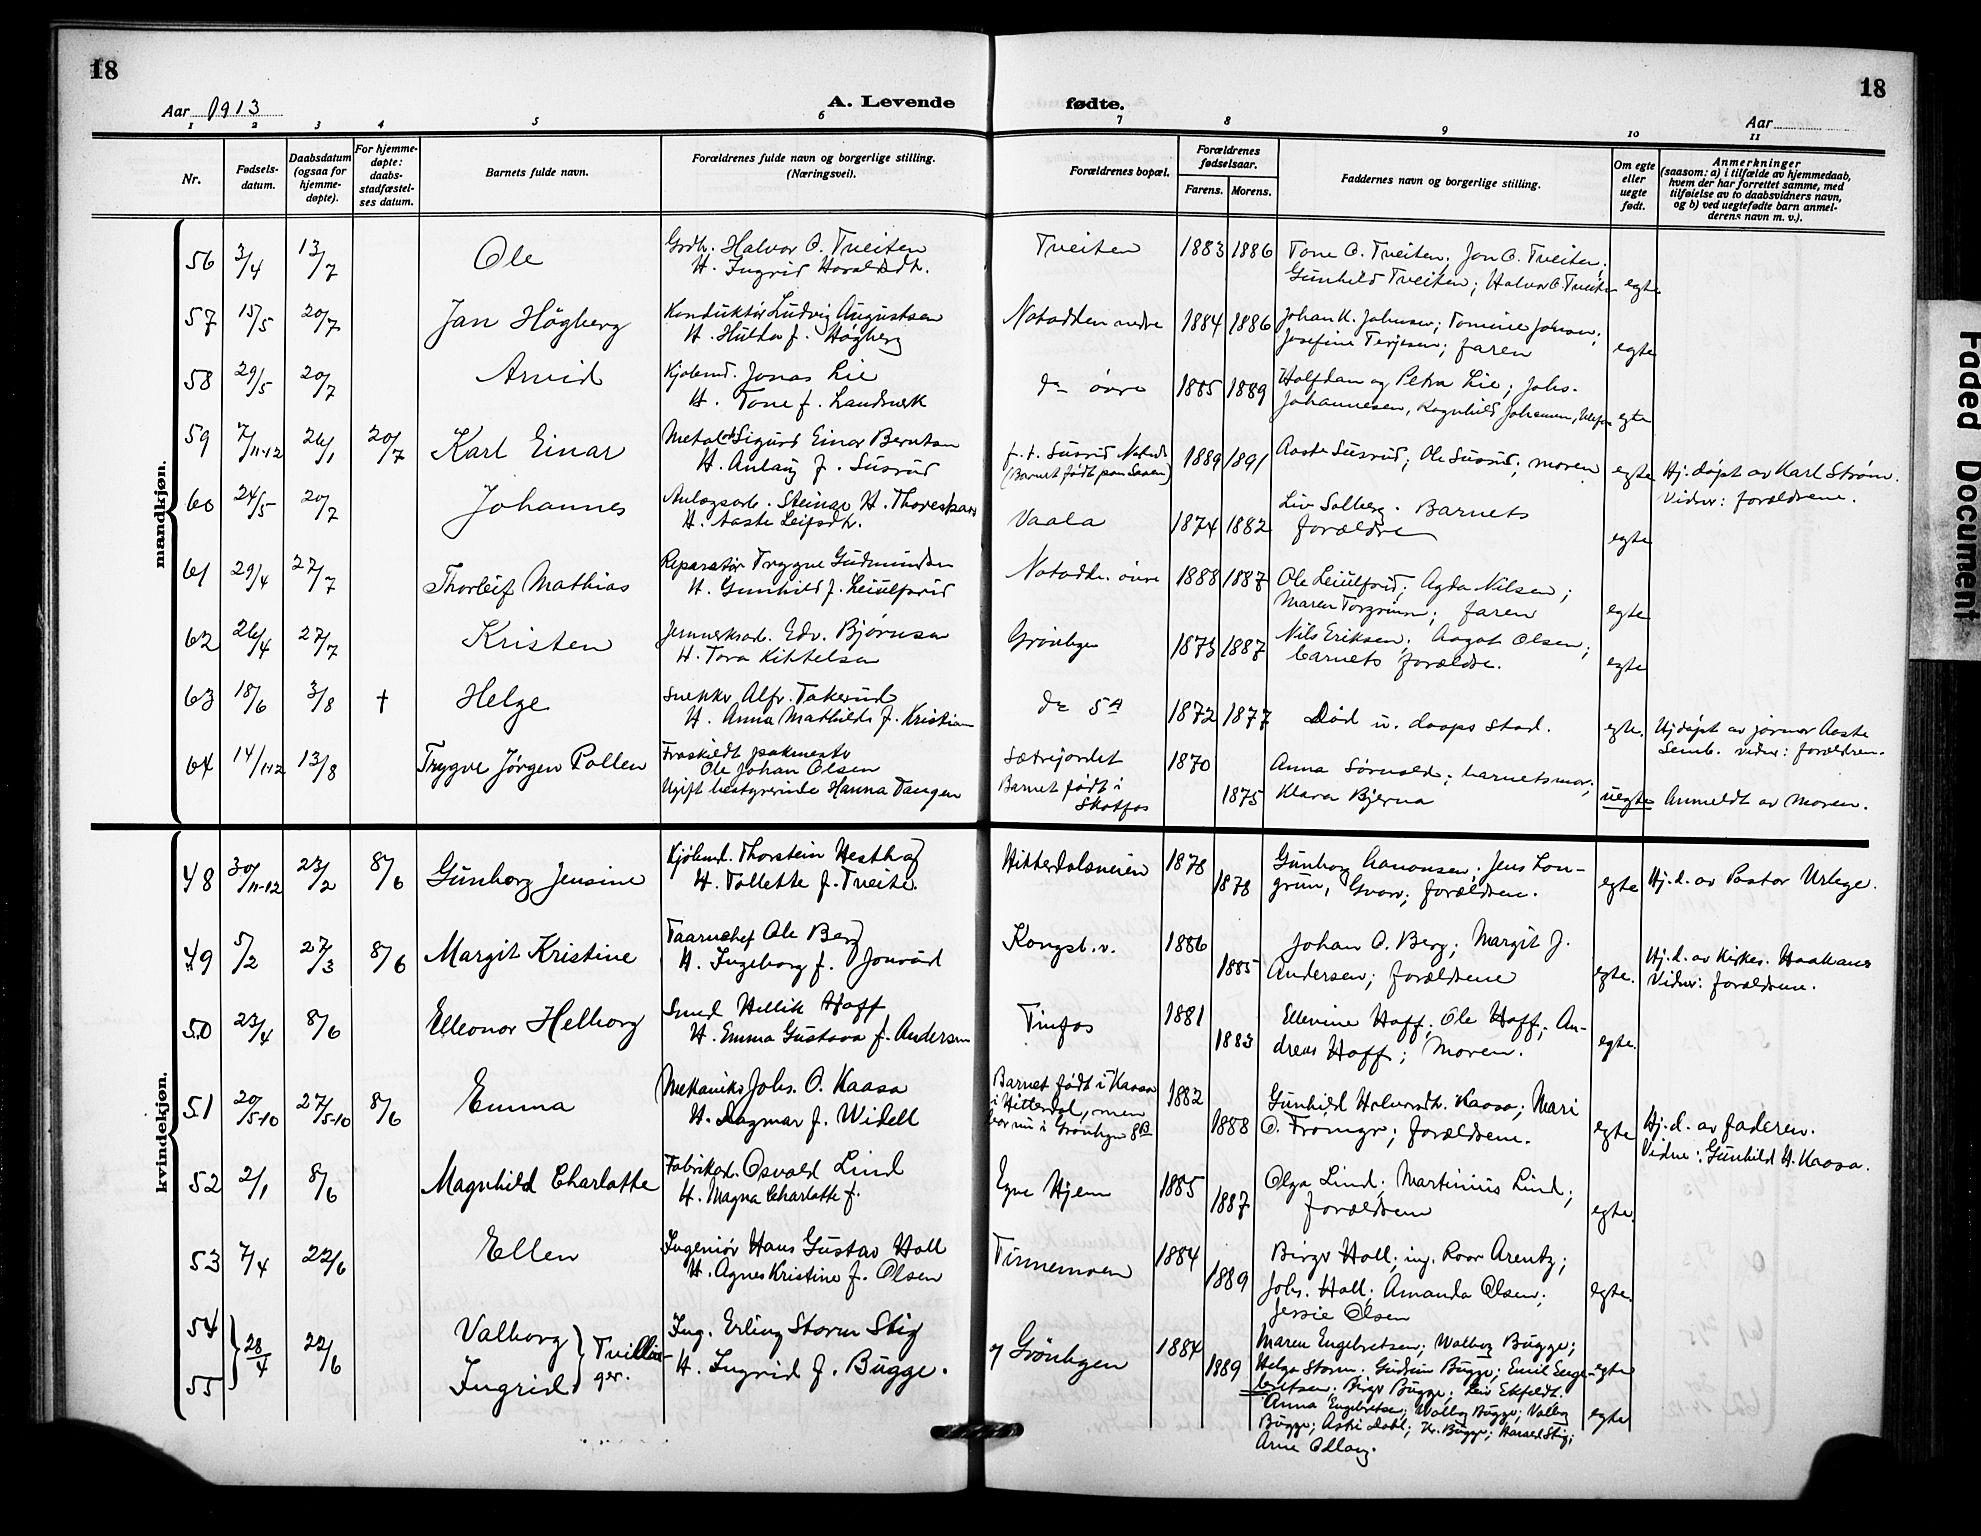 18
18
Aar 1913
A. Levende
fødte.
Aar
1 2 3 4 5 6 7 8 9 10 11
Nr.
Fødsels-
datum.
Daabsdatum
(ogsaa for
hjemme-
døpte).
For hjemme-
døpte:
daabs-
stadfæstel-
ses datum.
Barnets fulde navn.
Forældrenes fulde navn og borgerlige stilling.
(Næringsvei).
Forældrenes bopæl.
Forældrenes
fødselsaar.
Farens. Morens.
Faddernes navn og borgerlige stilling.
Om egte
eller
uegte
født.
Anmerkninger
(saasom: a) i tilfælde av hjemmedaab,
hvem der har forrettet samme, med
tilføielse av to daabsvidners navn,
og b) ved uegtefødte barn anmel-
derens navn m. v.).
mandkjøn.
56 3/4 13/7 Ole
Grdb. Halvor O. Tveiten
H. Ingrid
Tveiten 1883 1886
Tone O. Tveiten; Jon O. Tveiten;
Gunhild Tveiten; Halvor O. Tveiten
egte
57 15/5 20/7 Jan Högberg
Konduktør Ludvig Augustsen
H. Hulda f. Högberg
Notodden nedre 1884 1886
Johan K. Johnsen; Tomine Johnsen;
Josefine Terjesen; faren
egte
58 29/5 20/7 Arvid
Kjøbmd. Jonas Lie
H. Tone f. Landsverk
do øvre 1885 1889
Halfdan og Petra Lie; Johs.
Johannesen, Ragnhild Johannesen,
egte
59 7/11-12 26/1 20/7 Karl Einar
Sigurd Einar Berntsen
H. Anlaug f. Susrud
p. t. Susrud Notodd.
(Barnet født paa Saaem)
1889 1891
Aaste Susrud; Ole Susrud; moren
egte
Hj. døpt av Karl Strøm.
Vidner: forældrene.
60 24/5 20/7 Johannes
Anlægsarb. Steinar H.
H. Aaste Leifsdtr.
Vaala 1874 1882
Liv Solberg. Barnets
forældre
egte
61 29/4 27/7 Thorleif Mathias
Reparatør Trygve Gudmundsen
H. Gunhild f. Leiulfsrud
Notodden øvre 1888 1887
Ole Leiulfsrud; Agda Nilsen;
Maren Torgrimsen; faren
egte
62 26/4 27/7 Kristen
Jernverksarb. Edv. Bjørnsen
H. Tora Kittelsen
Grönbyen 1873 1887
Nils Eriksen; Aagot Olsen;
barnets forældre.
egte
63 18/6 3/8 † Helge
Snekker Alfr. Takerud
H. Anna Mathilde f. Kristian
do 5A 1872 1877
Død u. daaps stad.
egte.
Hjdøpt av jormor Aaste
Semb. vidner: forældren.
64 14/1-12 13/8 Trygve Jørgen Pollen
Fraskildt pakmester
Ole Johan Olsen
Ugift bestyrerinde Hanna Tangen
Sætrejordet
Barnet født i
Skotfos
1870 1875
Anna Sörvold; barnets mor;
Klara Bjerva
uegte
Anmeldt av moren.
kvindekjøn.
48 30/11-12 23/2 8/6 Gunborg Jensine
Kjøbmd. Thorstein Hesthag
H. Tollette f. Tveite.
Hitterdalsveien 1878 1878
Gunborg Aanonsen; Jens Lon-
grun, Gvarv; forældrene.
egte
Hj. d. av Pastor Urlege.
49 5/2 27/3 8/6 Margit Kristine
Taarnchef Ole Berg
H. Ingeborg f. Jonsrud
Kongsb. v. 1886 1885
Johan O. Berg; Margit J.
Andersen; forældrene
egte.
Hj. d. av Kirkes. Haakanes
Vidner: forældrene.
50 23/4 8/6 Elleonor Helborg
Smed Hellik Hoff
H. Emma Gustava f. Andersen
Tinfos 1881 1883
Ellevine Hoff; Ole Hoff; An-
dreas Hoff; moren.
egte.
51 20/5-10 27/5-10 8/6 Emma
Mekaniker Johs. O. Kaasa
H. Dagmar f. Widell
Barnet født i Kaasa
i Hitterdal, men
bor nu i Grönbyen 8B
1882 1888
Gunhild Halvorsdtr. Kaasa; Mari
O. Fromgr; forældrene.
egte
Hj. d. av faderen.
Vidne: Gunhild H. Kaasa.
52 2/1 8/6 Magnhild Charlotte
Fabrikarb. Osvald Lind
H. Magna Charlotte f.
Egne Hjem 1885 1887
Olga Lind; Martinius Lind;
forældrene
egte.
53 7/4 22/6 Ellen
Ingeniør Hans Gustav Holl
H. Agnes Kristine f. Olsen
Tinnemoen 1884 1889
Birger Holl; ing. Roar Arentz;
Johs. Holl; Amanda Olsen;
Jessie Olsen
egte.
54
55
28/4 22/6
Valborg
Ingrid
Tvillin-
ger.
Ing. Erling Storm Stig
H. Ingrid f. Bugge.
Grönbyen 1884 1889
Maren Engebretsen; Walborg Bugge;
Helga Storm; Gudrun Bugge; Emil Enge-
bretsen; Birger Bugge; Leiv Ekfeldt.
Anna Engebretsen; Walborg Bugge; Valborg
Bugge; Astri Dahl; Kr. Bugge; Harald Stig;
Arne Odlaug.
egte
egte
Faded Document